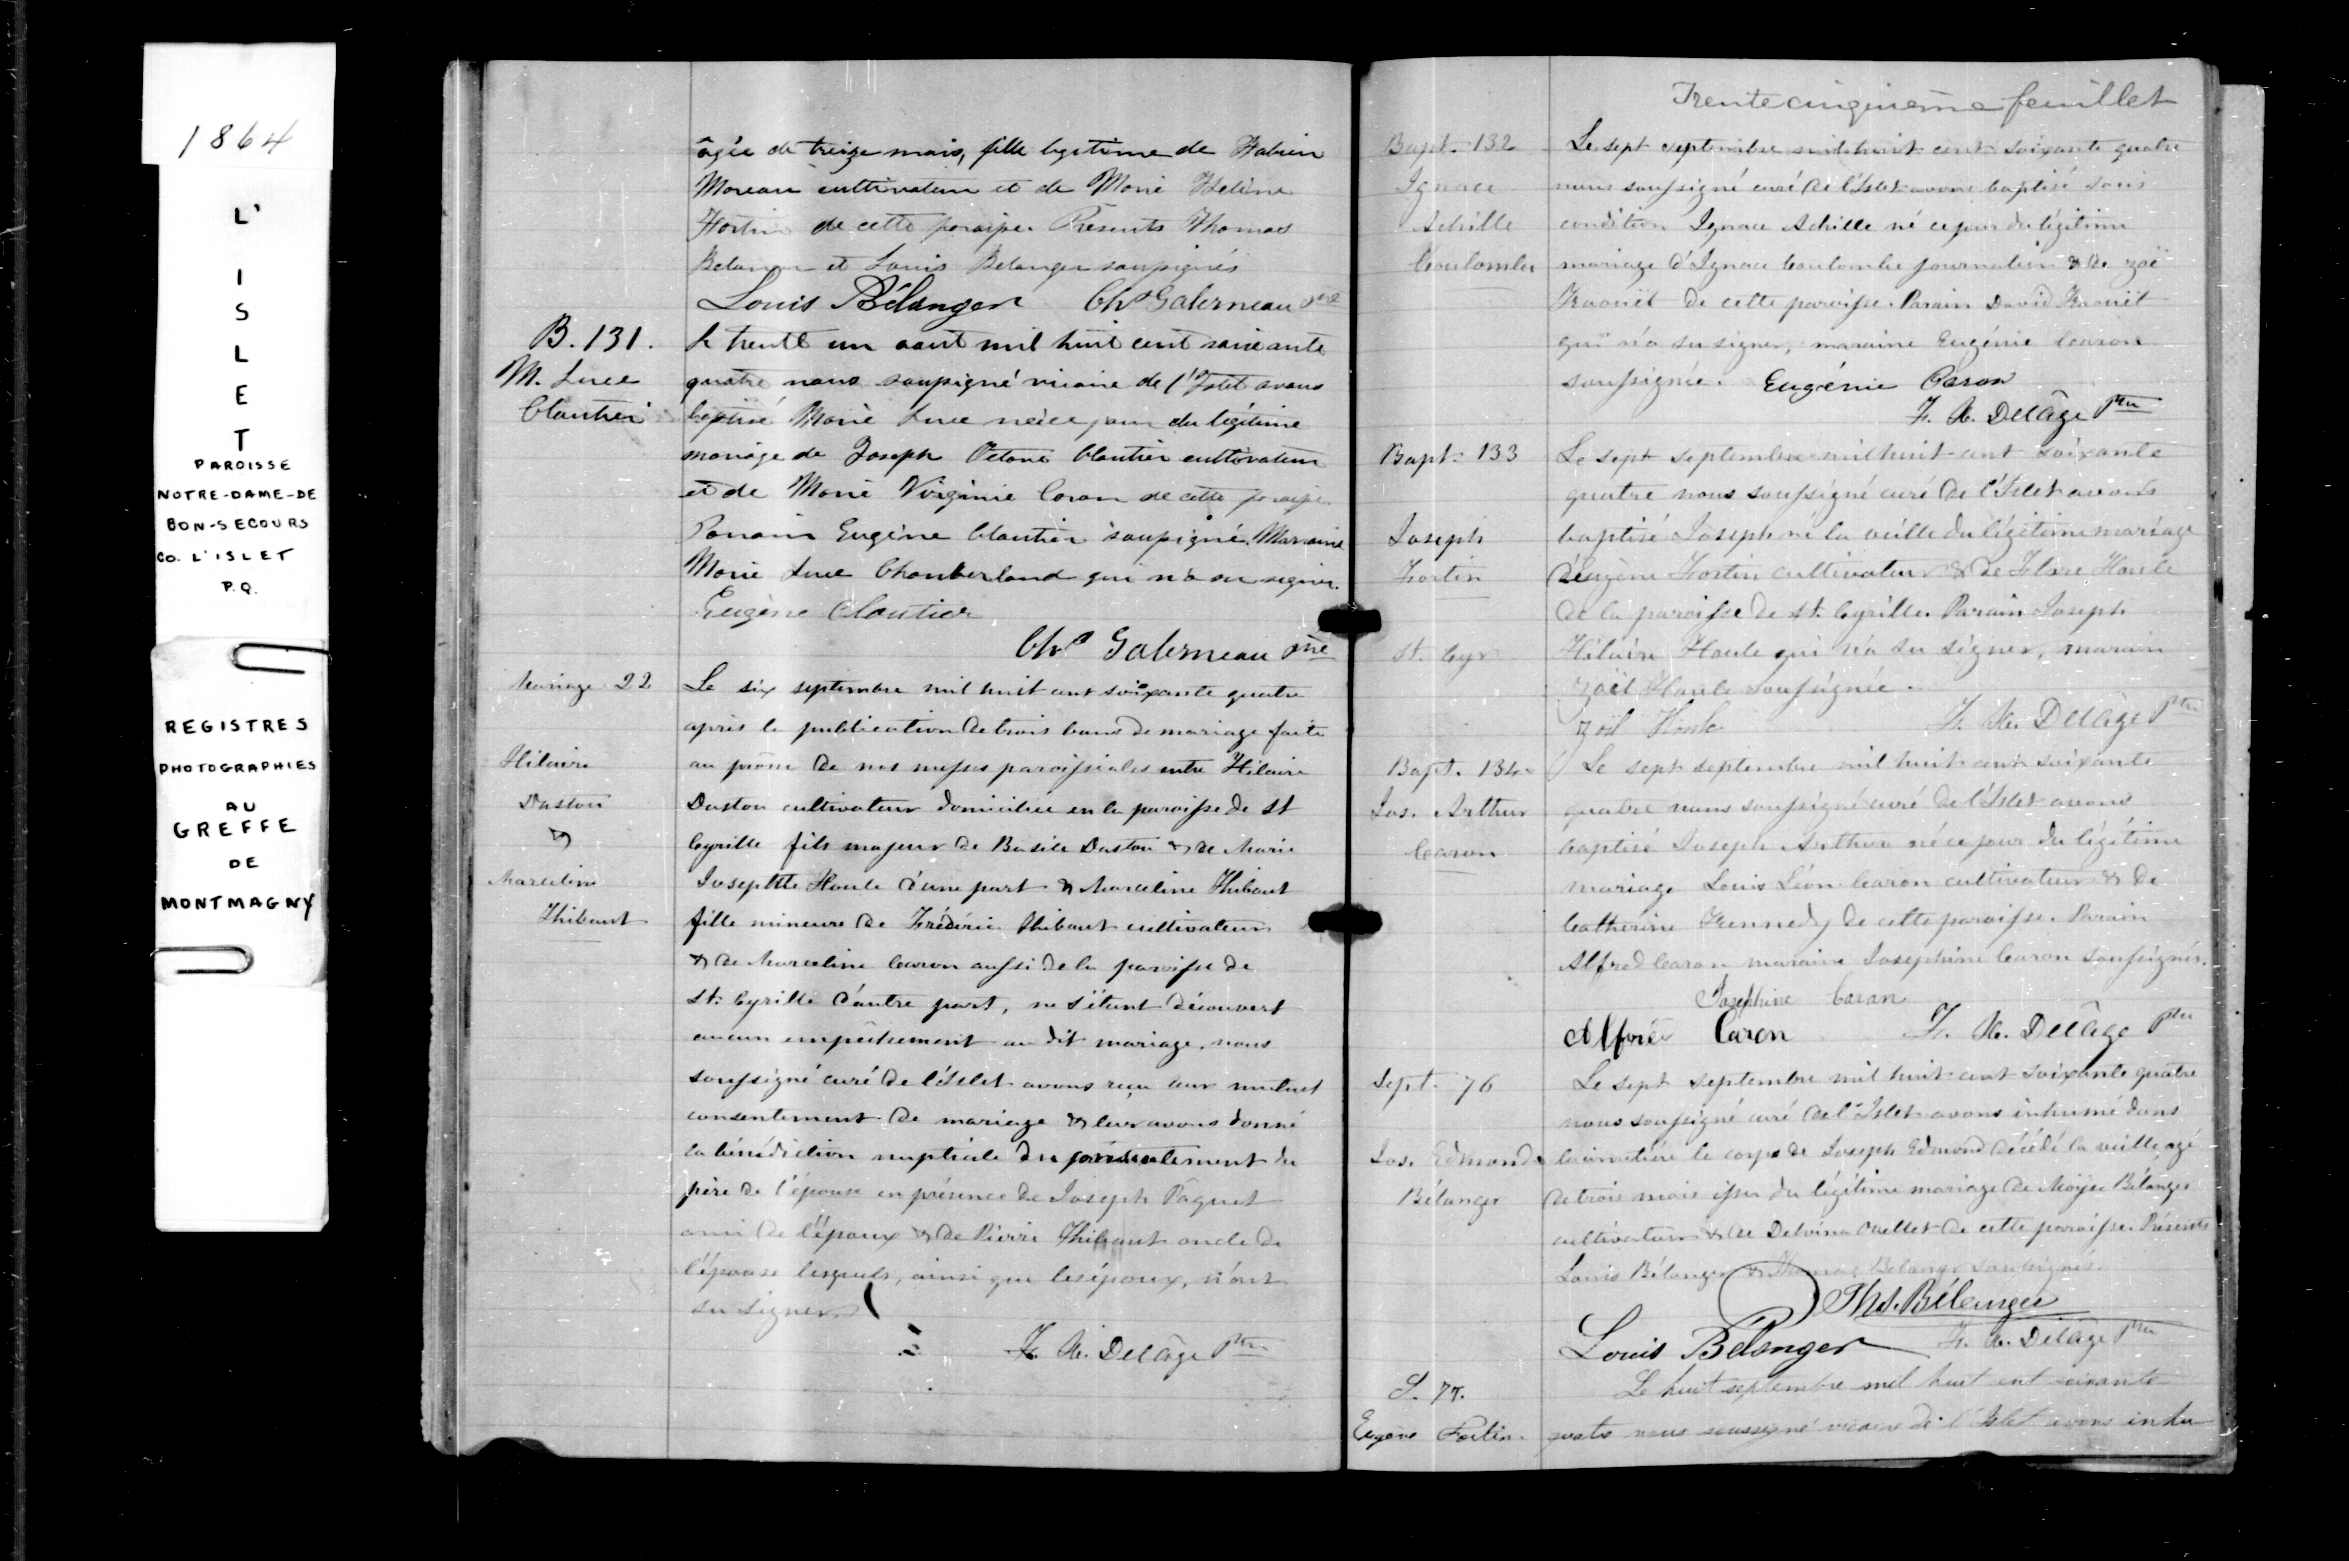 1864
L'
I
S
L
E
T
PAROISSE
NOTRE-DAME-DE
BON-SECOURS
CO. L'ISLET
P.Q.
REGISTRES
PHOTOGRAPHIES
AU
GREFFE
DE
MONTMAGNY
âgée de treize mois, fille legitime de Fabien
Moreau cultivateur et de Marie Helène
Fortin de cette paroisse. Présents Thomas
Belanger et Louis Belanger soussignés
Louis Bélanger Chs Galerneau ptre
B. 131.
M. Luce
Cloutier
Le trente un aout mil huit cent soixante
quatre nous soussigné vicaire de l'Islet avons
baptisé Marie Luce née ce jour du légitime
mariage de Joseph Octave Cloutier cultivateur
et de Marie Virginie Caron de cette paroisse
Parrain Eugène Cloutier soussigné. Marraine
Marie Luce Chamberland qui n'a su signer.
Eugène Cloutier
Chs Galerneau ptre
Mariage 22
Hilaire
Daston
&
Marceline
Thibaut
Le six septembre mil huit cent soixante quatre
après la publication de trois bans de mariage faite
au prône de nos messes paroissiales entre Hilaire
Daston cultivateur domicilié en la paroisse de St
Cyrille fils majeur de Basile Daston & de Marie
Josephte Houle d'une part & Marceline Thibaut
fille mineure de Frédéric Thibaut cultivateur
& de Marceline Caron aussi de la paroisse de
St. Cyrille d'autre part, ne s'étant découvert
aucun empêchement au dit mariage, nous
soussigné curé de l'Islet avons reçu leur mutuel
consentement de mariage & leur avons donné
la bénédiction nuptiale du consentement du
père de l'épouse en présence de Joseph Pâquet
ami de l'époux & de Pierre Thibaut oncle de
l'épouse lesquels, ainsi que les époux, n'ont
su signer.
F. X. Delâge Ptre
Trente cinquième feuillet
Bapt. 132
Ignace
Achille
Coulombe
Le sept septembre mil huit cent soixante quatre
nous soussigné curé de l'Islet avons baptisé sous
condition Ignace Achille né ce jour du légitime
mariage d'Ignace Coulombe journalier & de Zoé
de cette paroisse. Parain David
qui n'a su signer, maraine Eugénie Caron
soussignée. Eugénie Caron
F. X. Delâge Ptre
Bapt. 133
Joseph
Fortin
St. Cyr
Le sept septembre mil huit cent soixante
quatre nous soussigné curé de l'Islet avons
baptisé Joseph né la veille du légitime mariage
d'Eugène Fortin cultivateur & de Flore Houle
de la paroisse de St. Cyrille. Parain Joseph
Hilaire Houle qui n'a su signer, maraine
Zoël Houle soussignée.
Zoël Houle F. X. Delâge Ptre
Bapt. 134
Jos. Arthur
Caron
Le sept septembre mil huit cent soixante
quatre nous soussigné curé de l'Islet avons
baptisé Joseph Arthur né ce jour du légitime
mariage Louis Léon Caron cultivateur & de
Catherine Kennedy de cette paroisse. Parain
Alfred Caron maraine Josephine Caron soussignés.
Josephine Caron
Alfred Caron F. X. Delâge Ptre
Sept. 76
Jos. Edmond
Bélanger
Le sept septembre mil huit cent soixante quatre
nous soussigné curé de l'Islet avons inhumé dans
le cimetière le corps de Joseph Edmond décédé la veille, agé
de trois mois issu du légitime mariage de Moyse Bélanger
cultivateur & de Delvina Ouellet de cette paroisse. Présents
Louis Bélanger & Thomas Belanger soussignés.
Ths. Bélanger
Louis Bélanger F. X. Delâge Ptre
S. 77.
Eugène Fortin.
Le huit septembre mil huit cent soixante
quatre nous soussigné vicaire de l'Islet avons inhu